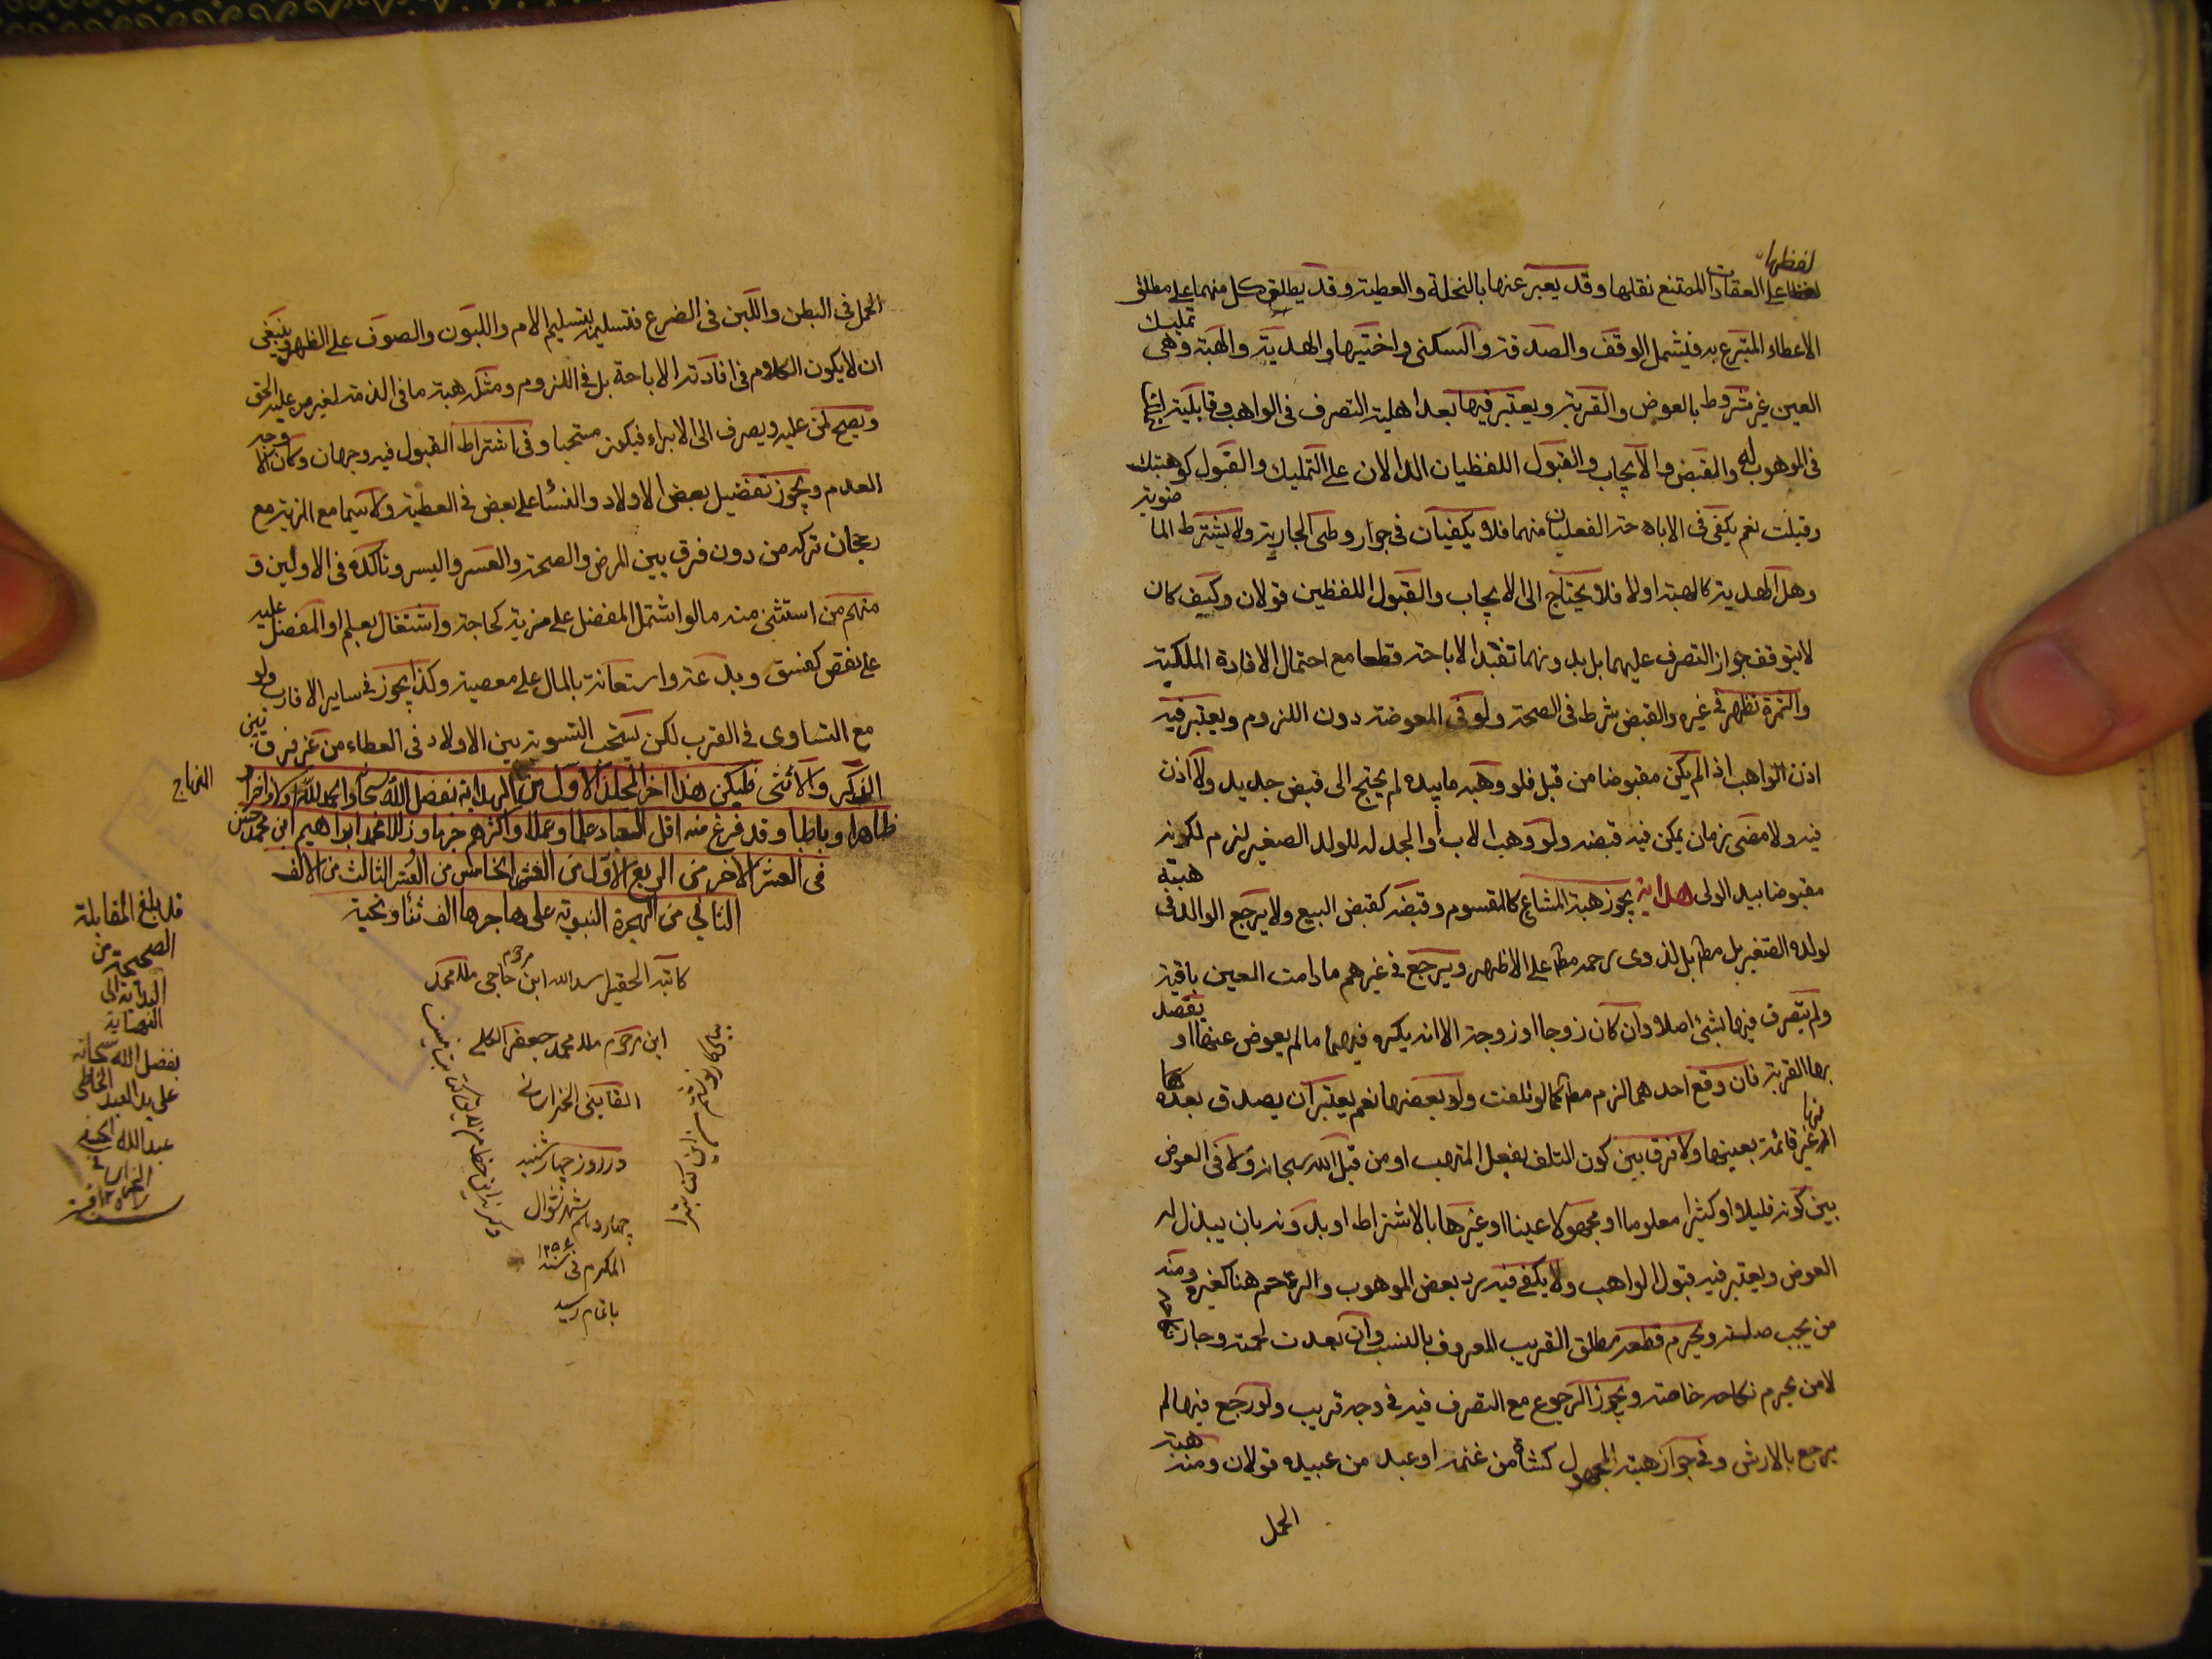 لفظها
على العقارات الممتنع نقلها وقد يعبر عنها بالنحلة والعطية وقد يطلق كل منهما على مطلق
الاعطاء المتبرع به فيشمل الوقف والصدقة والسكنى واختيها والهدية والهبة وهى تمليك
العين غير مشروط بالعوض والقربة ويعتبر فيها بعد اهلية التصرف فى الواهب وقابلية
فى الموهوب له والقبض والايجاب والقبول اللفظيان الدالان على التمليك والقبول كوهبتك
وقبلت نعم يكفى فى الاباحة الفعليان منهما فلا يكفيان فى جواز وطى الجارية ولا يشترط
وهل الهدية كالهبة اولا فلا يحتاج الى الايجاب والقبول اللفظين قولان وكيف كان
لا يتوقف جواز التصرف عليهما بل بدونهما تفيد الاباحة قطعا مع احتمال الافادة الملكية
والثمرة تظهر فى غيره والقبض شرط فى الصحة ولو فى المعوضة دون اللزوم ويعتبر فيه
اذن الواهب اذ لم يكن مقبوضا من قبل فلو وهبه ما بيده لم يحتج الى قبض جديد ولا اذن
فيه ولا مضى زمان يمكن فيه قبضه ولو وهب الاب أو الجد له للولد الصغير لزم لكونه
مقبوضا بيد الولى هداية يجوز هبة المشاع كالمقسوم وقبضه كقبض البيع ولا يرجع الوالد فى هبة
لولده الصغير بل مطم بل لذوى رحمه مطم على الاظهر ويرجع فى غيرهم ما دامت العين باقية
ولم يتصرف فيها بشئ اصلا وان كان زوجا او زوجة الا انه يكره فيهما ما لم يعوض عنها او يقصد
بها القربة فان وقع احدهما لزم مطم كما لو تلفت ولو بعضها نعم يعتبر ان يصدق بعده
انها غير قائمة بعينها ولا فرق بين كون التلف بفعل المتهب او من قبل الله سبحانه ولا فى العوض
بين كونه قليلا او كثيرا معلوما او مجهولا عينا او غيرها بالاشتراط او بدونه بان يبذل له
العوض ويعتبر فيه قبول الواهب ولا يكفى فيه رد بعض الموهوب والرحم هنا كغيره
من يجب صلته ويحرم قطعه مطلق القريب المعروف بالنسب وان بعدت لحمته وجاز
لا من يحرم نكاحه خاصة ويجوز الرجوع مع التصرف فيه فى وجه قريب ولو رجع فيها لم
يرجع بالارش وفى جواز هبة المجهول كشاة من غنمه او عبد من عبيده قولان ومنه هبة
الحمل
الحمل فى البطن واللبن فى الضرع فتسليمه بتسليم الام واللبون والصوف على الظهر وينبغى
ان لا يكون الكلام فى افادته الاباحة بل فى اللزوم ومثله هبة ما فى الذمة لغير من عليه الحق
ويصح لمن عليه ويصرف الى الابراء فيكون مستحبا وفى اشتراط القبول فيه وجهان
العدم ويجوز تفضيل بعض الاولاد والنساء على بعض فى العطية ولا سيما مع المزية مع
رجحان تركه من دون فرق بين المرض والصحة والعسر واليسر وتاكده فى الاولين و
منهم من استثنى منه ما لو اشتمل المفضل على مزية كحاجة واشتغال بعلم او المفضل عليه
على نقص كفسق وبدعة واستعانة بالمال على معصية وكذا يجوز فى ساير الاقارب ولو
مع التساوى فى القرب لكن يستحب التسوية بين الاولاد فى العطاء من غير فرق بين
الذكر والأنثى فليكن هذا اخر المجلد الاول من الهداية بفضل الله سبحانه والحمد لله اولا واخرا
ظاهرا وباطنا وقد فرغ منه اقل العباد علما وعملا واكثرهم جرما وزللا محمد ابراهيم ابن محمد حسن
فى العشر الاخر من الربع الاول من العشر الخامس من العشر الثالث من الالف
الثانى من الهجرة النبوية على هاجرها الف ثناء وتحية
كاتبه الحقير اسد الله ابن مرحوم حاجى ملا محمد
ابن مرحوم ملا محمد جعفر
القاينى الخراسانى
در روز چهارشنبه
چهاردهم شهر شوال
المكرم فى سنه ١٢٥٤
باتمام رسيد
قد بلغ المقابلة
الصحيحة من
البداية الى
النهاية
بفضل الله سبحانه
على يد العبد الخاطى
عبد الله